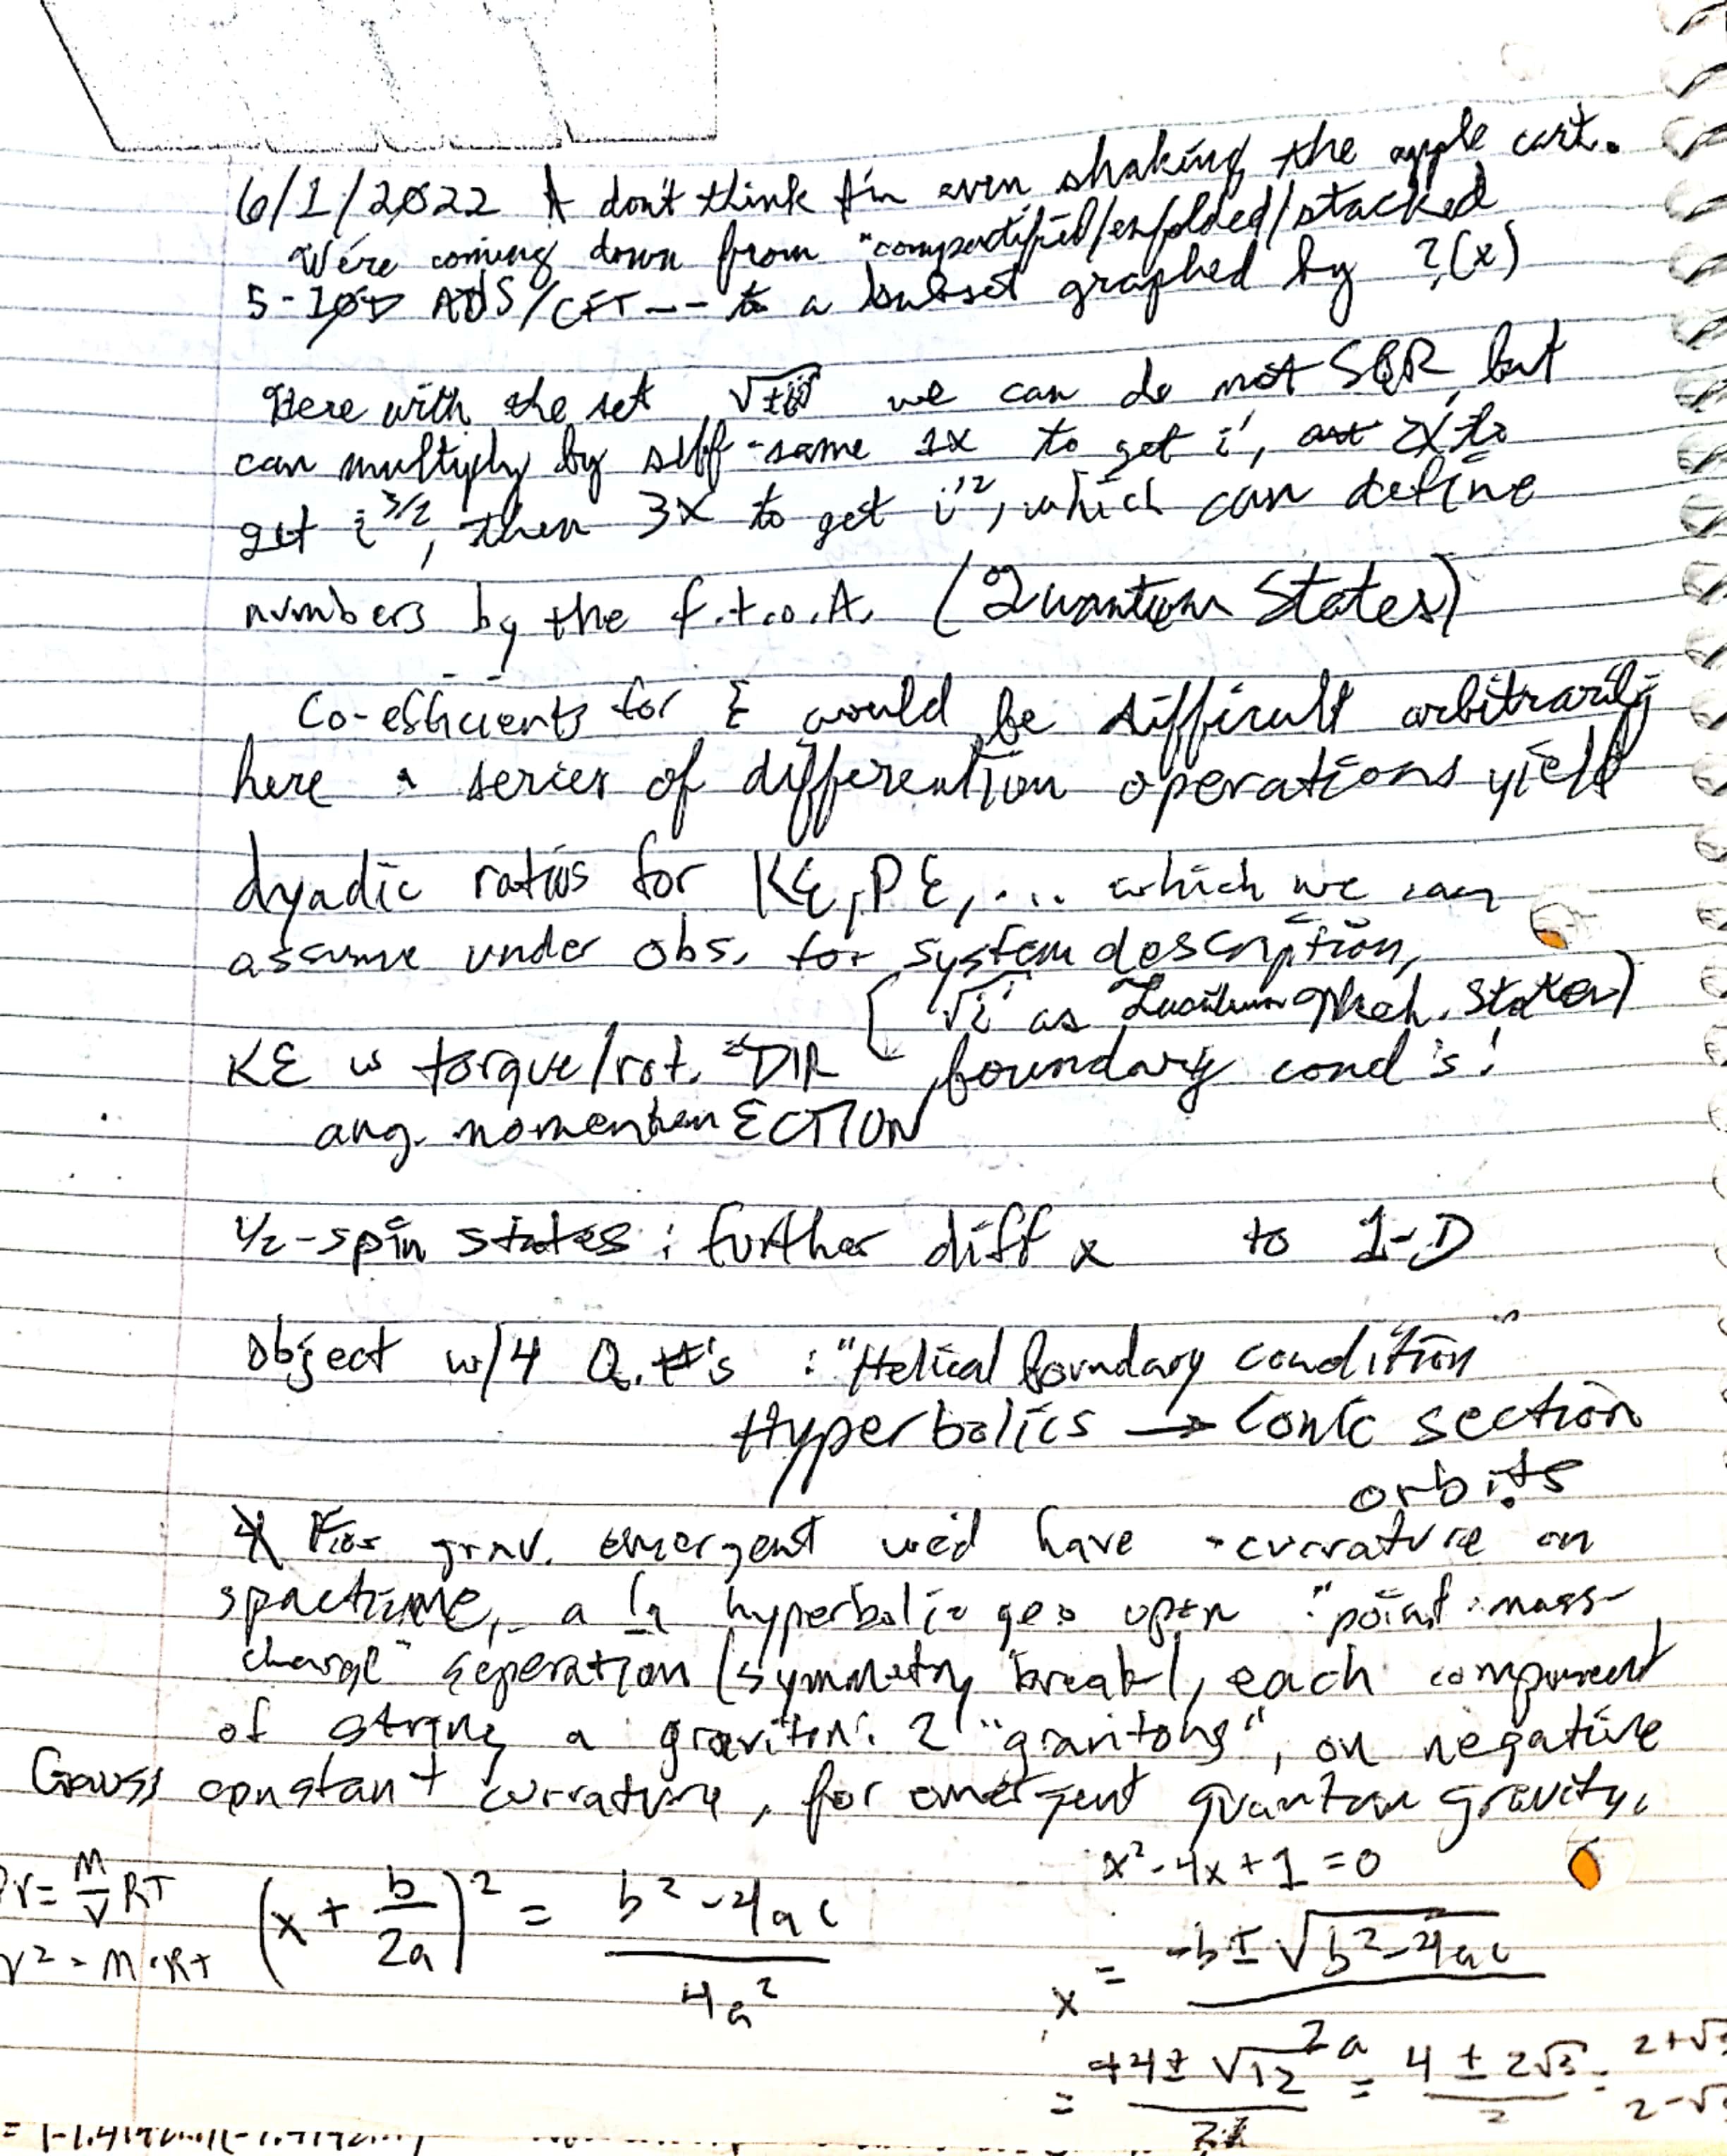 6/1/2022 I don't think I'm even shaking the apple cart.
We're coming down from "compactified/enfolded/stacked
5-10D ADS/CFT -- to a subset graphed by ?(x)
Here with the set √±i we can do not but
can multiply by self-same 1x to get i', 2x to
get i^3/2, then 3x to get i'^2, which can define
numbers by the f.t.o.A. (Quantum States)
Co-efficients for Σ would be difficult arbitrarily
here a series of differention operations yield
dyadic ratios for KE, PE, ... which we can
assume under obs. for system description,
(√i' as Quantum Mech. States)
KE is torque/rot. "DIR boundary cond's!
ang. momentum ECTION
1/2-spin states : further diff x to 1-D
object w/4 Q.#'s : "Helical boundary condition"
Hyperbolics → Conic section
orbits
For grav. emergent we'd have -curvature on
spactime, a la hyperbolic geo upon "point-mass-
charge" seperation (symmetry break), each component
of string a graviton: 2 "gravitons", on negative
Gauss constant curvature, for emergent quantum gravity.
PV = M/V RT (x + b/2a)^2 = b^2 - 4ac / 4a^2 x^2 - 4x + 1 = 0
V^2 = M·RT x = -b ± √b^2-4ac / 2a
= +4 ± √12 / 2 = 4 ± 2√3 / 2 = 2+√3
2-√3